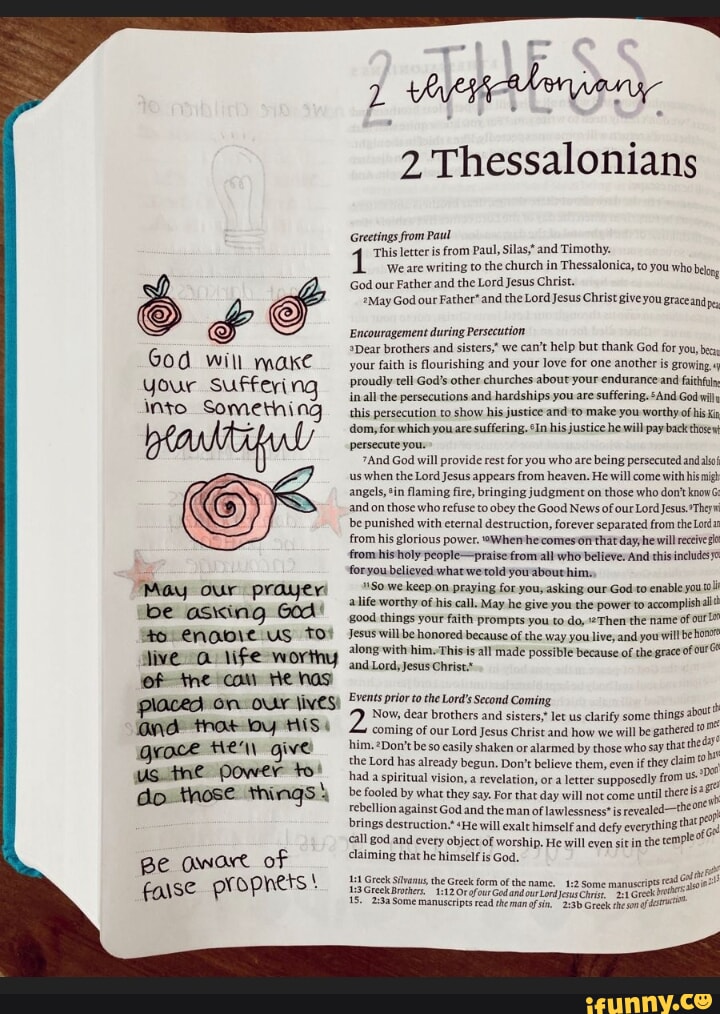 2 THESS.
2 thessalonians
2 Thessalonians
God will make
your suffering
into something
beautiful
May our prayer
be asking God
to enable us to
live a life worthy
of the call He has
placed on our lives
and that by His
grace He'll give
us the power to
do those things!
Be aware of
false prophets!
Greetings from Paul
1 This letter is from Paul, Silas,* and Timothy.
We are writing to the church in Thessalonica, to you who belong
God our Father and the Lord Jesus Christ.
2May God our Father* and the Lord Jesus Christ give you grace and
Encouragement during Persecution
3Dear brothers and sisters,* we can't help but thank God for you,
your faith is flourishing and your love for one another is growing.
proudly tell God's other churches about your endurance and
in all the persecutions and hardships you are suffering. 5And God will
this persecution to show his justice and to make you worthy of his
dom, for which you are suffering. 6In his justice he will pay back those
persecute you.
7And God will provide rest for you who are being persecuted and also
us when the Lord Jesus appears from heaven. He will come with his
angels, 8in flaming fire, bringing judgment on those who don't know
and on those who refuse to obey the Good News of our Lord Jesus. 9They
be punished with eternal destruction, forever separated from the Lord
from his glorious power. 10When he comes on that day, he will receive
from his holy people—praise from all who believe. And this includes
for you believed what we told you about him.
11So we keep on praying for you, asking our God to enable you to
a life worthy of his call. May he give you the power to accomplish all
good things your faith prompts you to do. 12Then the name of our
Jesus will be honored because of the way you live, and you will be
along with him. This is all made possible because of the grace of our
and Lord, Jesus Christ.*
Events prior to the Lord's Second Coming
2 Now, dear brothers and sisters,* let us clarify some things about
coming of our Lord Jesus Christ and how we will be gathered to
him. 2Don't be so easily shaken or alarmed by those who say that the day
the Lord has already begun. Don't believe them, even if they claim to
had a spiritual vision, a revelation, or a letter supposedly from us. 3Don't
be fooled by what they say. For that day will not come until there is a
rebellion against God and the man of lawlessness* is revealed—the one
brings destruction.* 4He will exalt himself and defy everything that
call god and every object of worship. He will even sit in the temple of
claiming that he himself is God.
1:1 Greek Silvanus, the Greek form of the name. 1:2 Some manuscripts read God the Father
1:3 Greek Brothers. 1:12 Or of our God and our Lord Jesus Christ. 2:1 Greek brothers; also in 2:13,
15. 2:3a Some manuscripts read the man of sin. 2:3b Greek the son of destruction.
ifunny.co